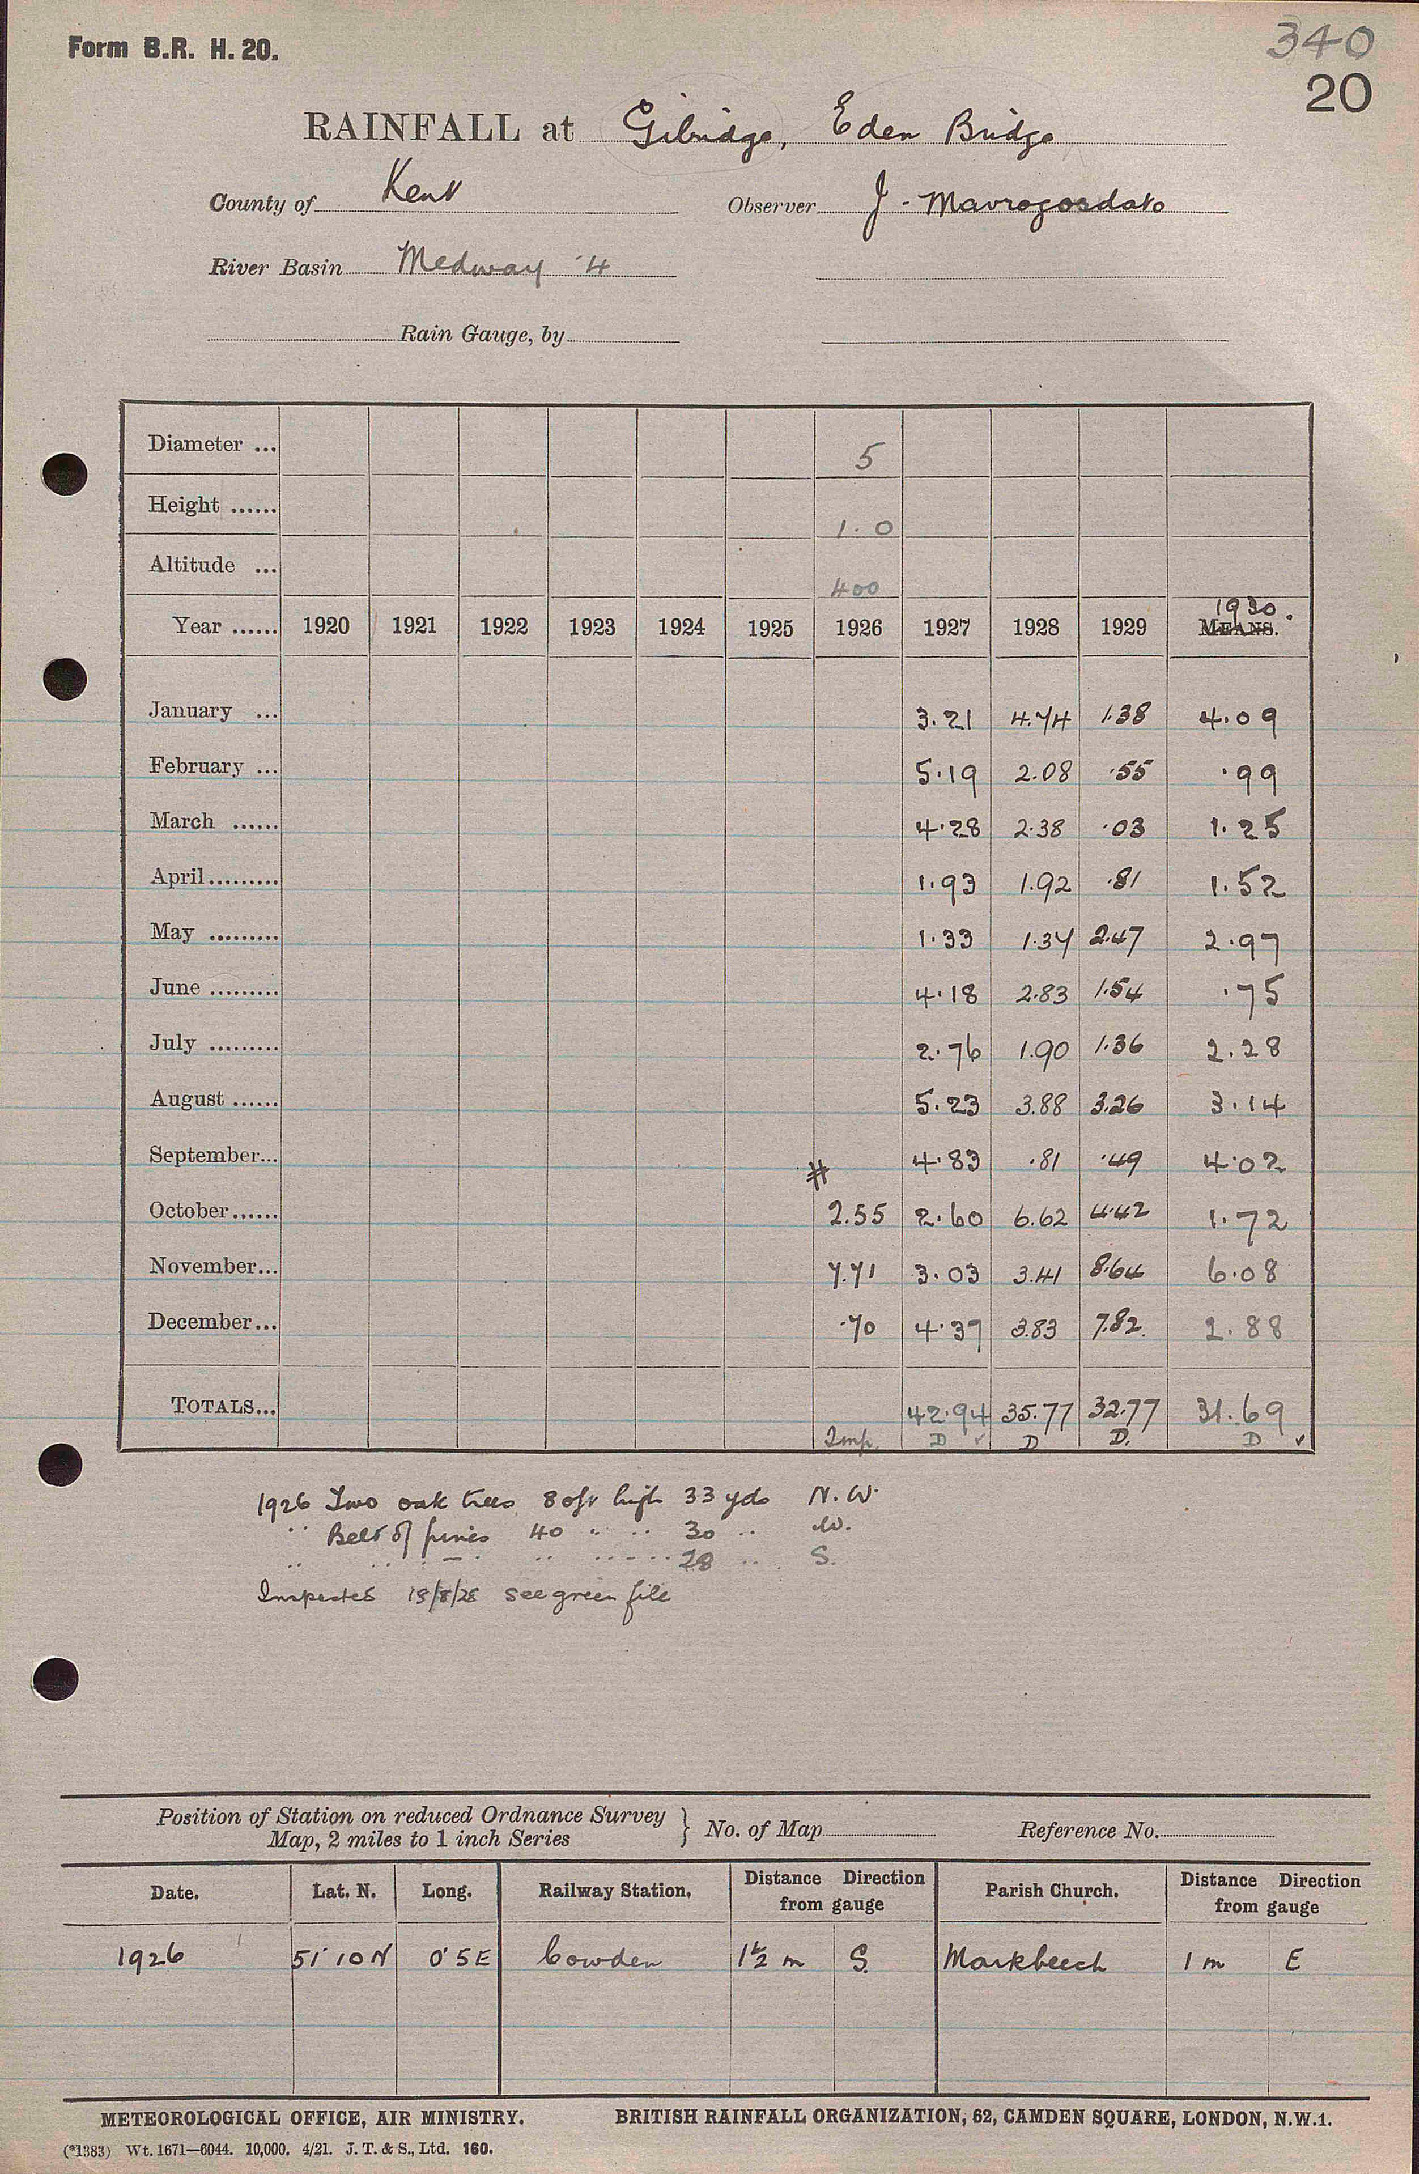 Form B.R. H. 20.
340
20
RAINFALL at Gilridge, Eden Bridge
County of Kent Observer J. Mavrogordato
River Basin Medway 4
Rain Gauge, by
Diameter ... 5
Height ...... 1.0
Altitude ... 400
Year ...... 1920 1921 1922 1923 1924 1925 1926 1927 1928 1929 MEANS. 1930.
January ... 3.21 4.74 1.38 4.09
February ... 5.19 2.08 .55 .99
March ...... 4.28 2.38 .03 1.25
April......... 1.93 1.92 .81 1.52
May ......... 1.33 1.37 2.47 2.97
June ......... 4.18 2.83 1.54 .75
July ......... 2.76 1.90 1.36 2.28
August ...... 5.23 3.88 3.26 3.14
September... # 4.83 .81 .49 4.02
October...... 2.55 2.60 6.62 4.42 1.72
November... 7.71 3.03 3.41 8.64 6.08
December... .70 4.37 3.83 7.82 2.88
TOTALS... 42.94 35.77 32.77 31.69
Imp. D ✓ D D. D ✓
1926 Two oak trees 80ft high 33 yds N.W.
" Belt of pines 40 " " 30 " W.
" " " - " " " " 28 " S.
Inspected 18/8/28 see green file
Position of Station on reduced Ordnance Survey
Map, 2 miles to 1 inch Series } No. of Map Reference No.
Date. Lat. N. Long. Railway Station. Distance Direction from gauge Parish Church. Distance Direction from gauge
1926 51°10N 0°5E Cowden 1½ m S. Markbeech 1 m E
METEOROLOGICAL OFFICE, AIR MINISTRY. BRITISH RAINFALL ORGANIZATION, 62, CAMDEN SQUARE, LONDON, N.W.1.
(*1383) Wt. 1671—6044. 10,000. 4/21. J. T. & S., Ltd. 160.